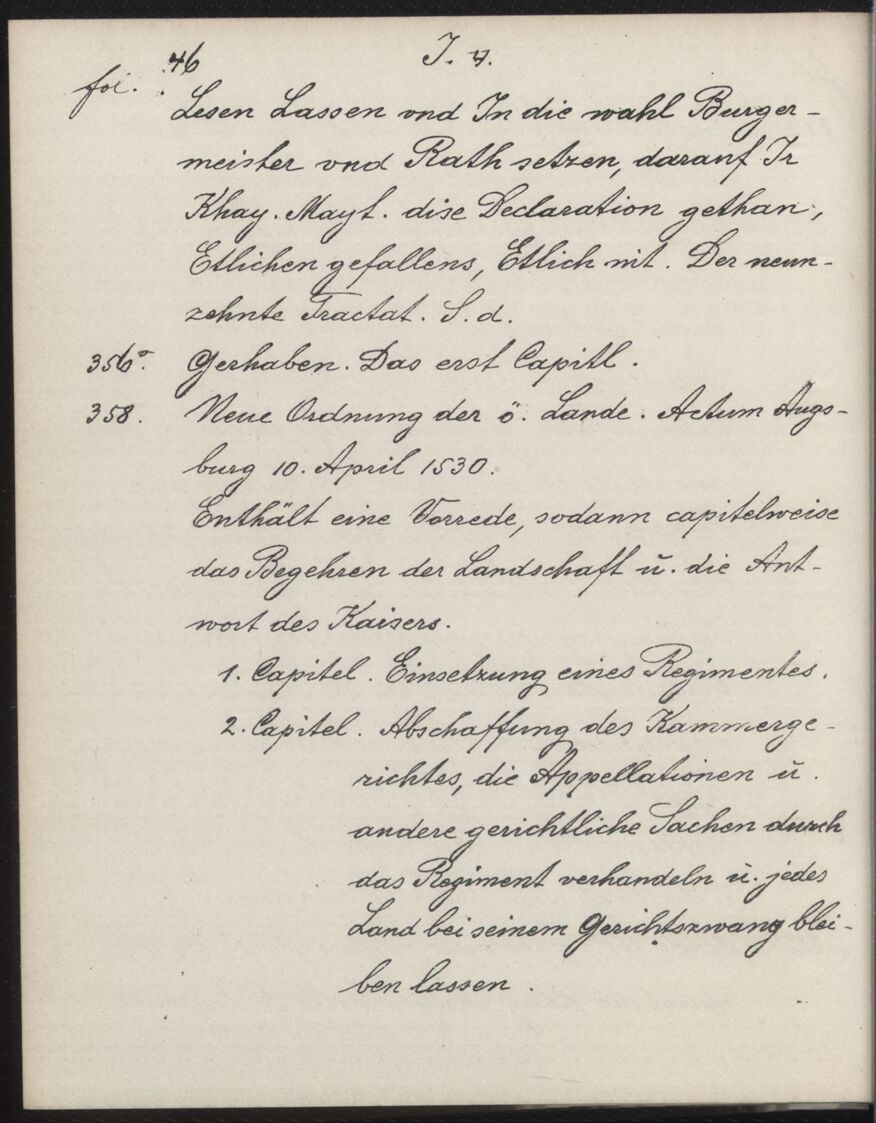 46
J. 4.
fol. :
Lesen Lassen vnd In die wahl Burger-
meister vnd Rath setzen, darauf Ir
Khay. Mayt. dise Declaration gethan,
Etlichen gefallens, Etlich nit. Der neun-
zehnte Tractat. S. d.
356v. Gerhaben. Das erst Capitl.
358. Neue Ordnung der ö. Lande. Actum Augs-
burg 10. April 1530.
Enthält eine Vorrede, sodann capitelweise
das Begehren der Landschaft u. die Ant-
wort des Kaisers.
1. Capitel. Einsetzung eines Regimentes.
2. Capitel. Abschaffung des Kammerge-
richtes, die Appellationen u.
andere gerichtliche Sachen durch
das Regiment verhandeln u. jedes
Land bei seinem Gerichtszwang blei-
ben lassen.